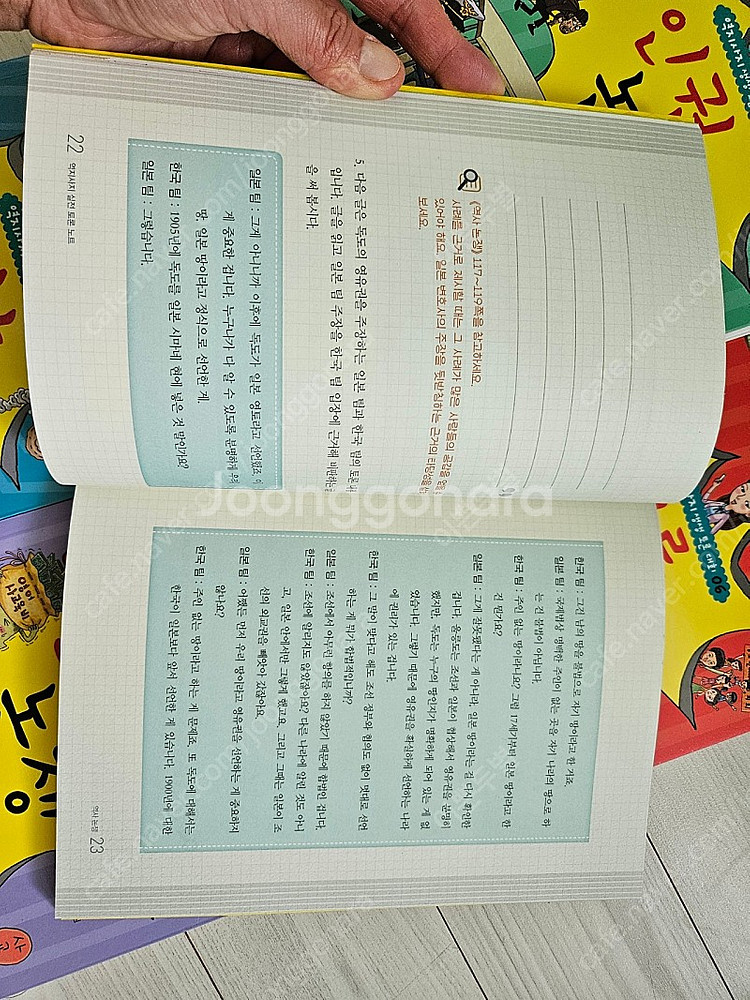 《역사 논쟁》 117~119쪽을 참고하세요.
사례를 근거로 제시할 때는 그 사례가 많은 사람들의 공감을
있어야 해요. 일본 변호사의 주장을 뒷받침하는 근거의 타당성을
보세요.
5. 다음 글은 독도의 영유권을 주장하는 일본 팀과 한국 팀의 토론
입니다. 글을 읽고 일본 팀 주장을 한국 팀 입장에 근거해 비판하는
을 써 봅시다.
일본 팀 : 그게 아니니까 이후에 독도가 일본 영토라고 선언했죠.
게 중요한 겁니다. 누구나가 다 알 수 있도록 분명하게
땅, 일본 땅이라고 정식으로 선언한 게.
한국 팀 : 1905년에 독도를 일본 시마네 현에 넣은 것 말인가요?
일본 팀 : 그렇습니다.
22 역지사지 실전 토론 노트
한국 팀 : 그건 남의 땅을 불법으로 자기 땅이라고 한 거죠.
일본 팀 : 국제법상 명백한 주인이 없는 곳을 자기 나라의 땅으로 하
는 건 불법이 아닙니다.
한국 팀 : 주인 없는 땅이라니요? 그럼 17세기부터 일본 땅이라고 한
건 뭔가요?
일본 팀 : 그게 잘못됐다는 게 아니라, 일본 땅이라는 걸 다시 확인한
겁니다. 울릉도는 조선과 일본이 협상해서 영유권을 분명히
했지만, 독도는 누구의 땅인지가 명확하게 되어 있는 게 없
었습니다. 그렇기 때문에 영유권을 확실하게 선언하는 나라
에 권리가 있는 겁니다.
한국 팀 : 그 말이 맞다고 해도 조선 정부와 협의도 없이 멋대로 선언
하는 게 뭐가 합법적입니까?
일본 팀 : 조선에서 아무런 항의를 하지 않았기 때문에 합법인 겁니다.
한국 팀 : 조선에 알리지도 않았잖아요? 다른 나라에 알린 것도 아니
고, 일본 안에서만 그렇게 했고요. 그리고 그때는 일본이 조
선의 외교권을 빼앗아 갔잖아요.
일본 팀 : 어쨌든 먼저 우리 땅이라고 영유권을 선언하는 게 중요하지
않나요?
한국 팀 : 주인 없는 땅이라고 하는 게 문제죠. 또 독도에 대해서는
한국이 일본보다 앞서 선언한 게 있습니다. 1900년에 대한
역사 논쟁 23
인권
논쟁
Joonggonara
cafe.naver.com/joonggonara